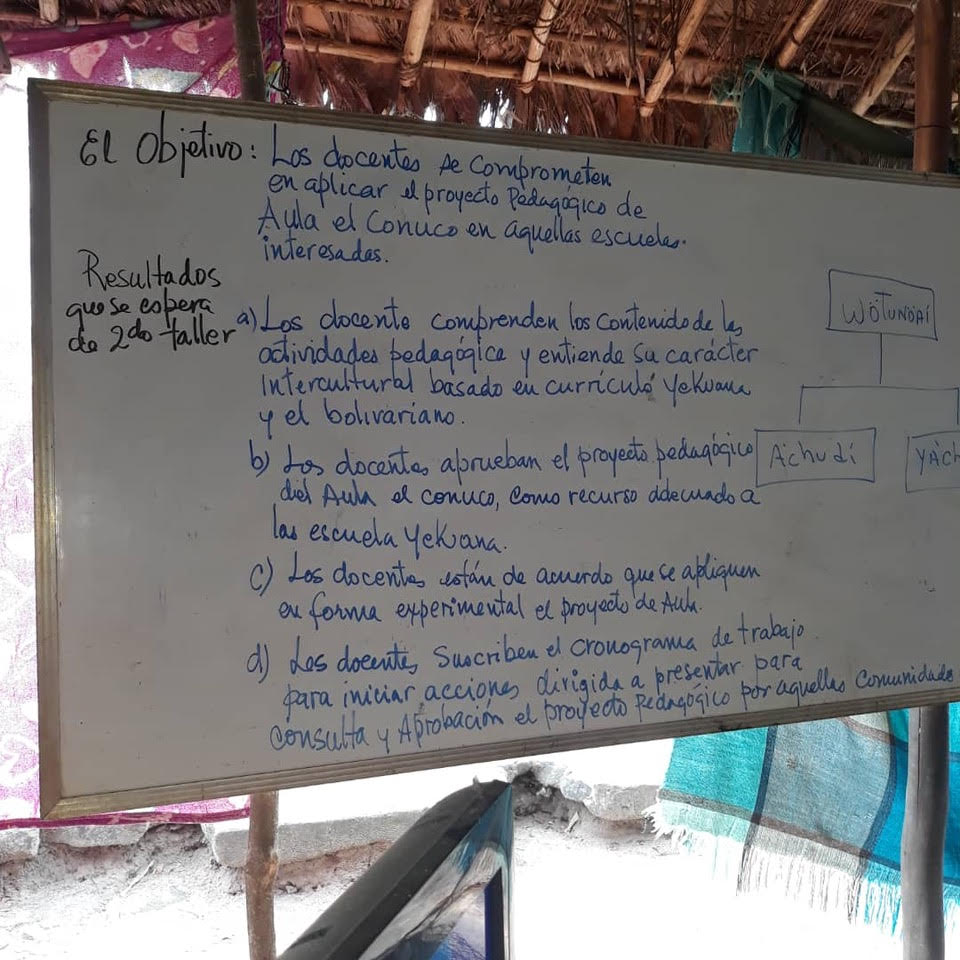 El Objetivo: Los docentes se comprometen
en aplicar el proyecto Pedagógico de
Aula el Conuco en aquellas escuelas
interesadas.
Resultados
que se espera
de 2do taller
a) Los docente comprenden los contenido de las
actividades pedagógica y entiende su carácter
Intercultural basado en curriculo Yekuana
y el bolivariano.
b) Los docentes aprueban el proyecto pedagógico
del Aula el conuco, como recurso adecuado a
las escuela Yekuana.
c) Los docentes están de acuerdo que se apliquen
en forma experimental el proyecto de Aula.
d) Los docentes Suscriben el cronograma de trabajo
para iniciar acciones dirigida a presentar para
consulta y Aprobación el proyecto Pedagógico por aquellas Comunidade
WÖTUNÖÄI
Ächudi
YÄCH